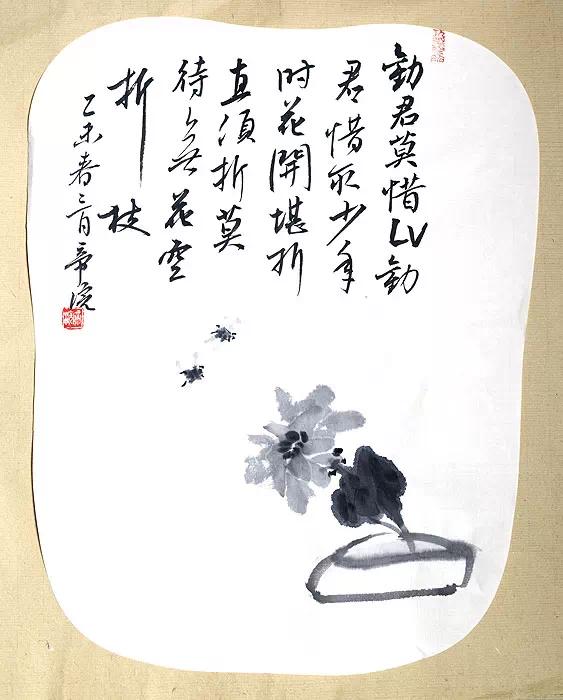 勸君莫惜LV勸
君惜取少年
时花開堪折
直须折莫
待無花空
折枝
乙未春三月